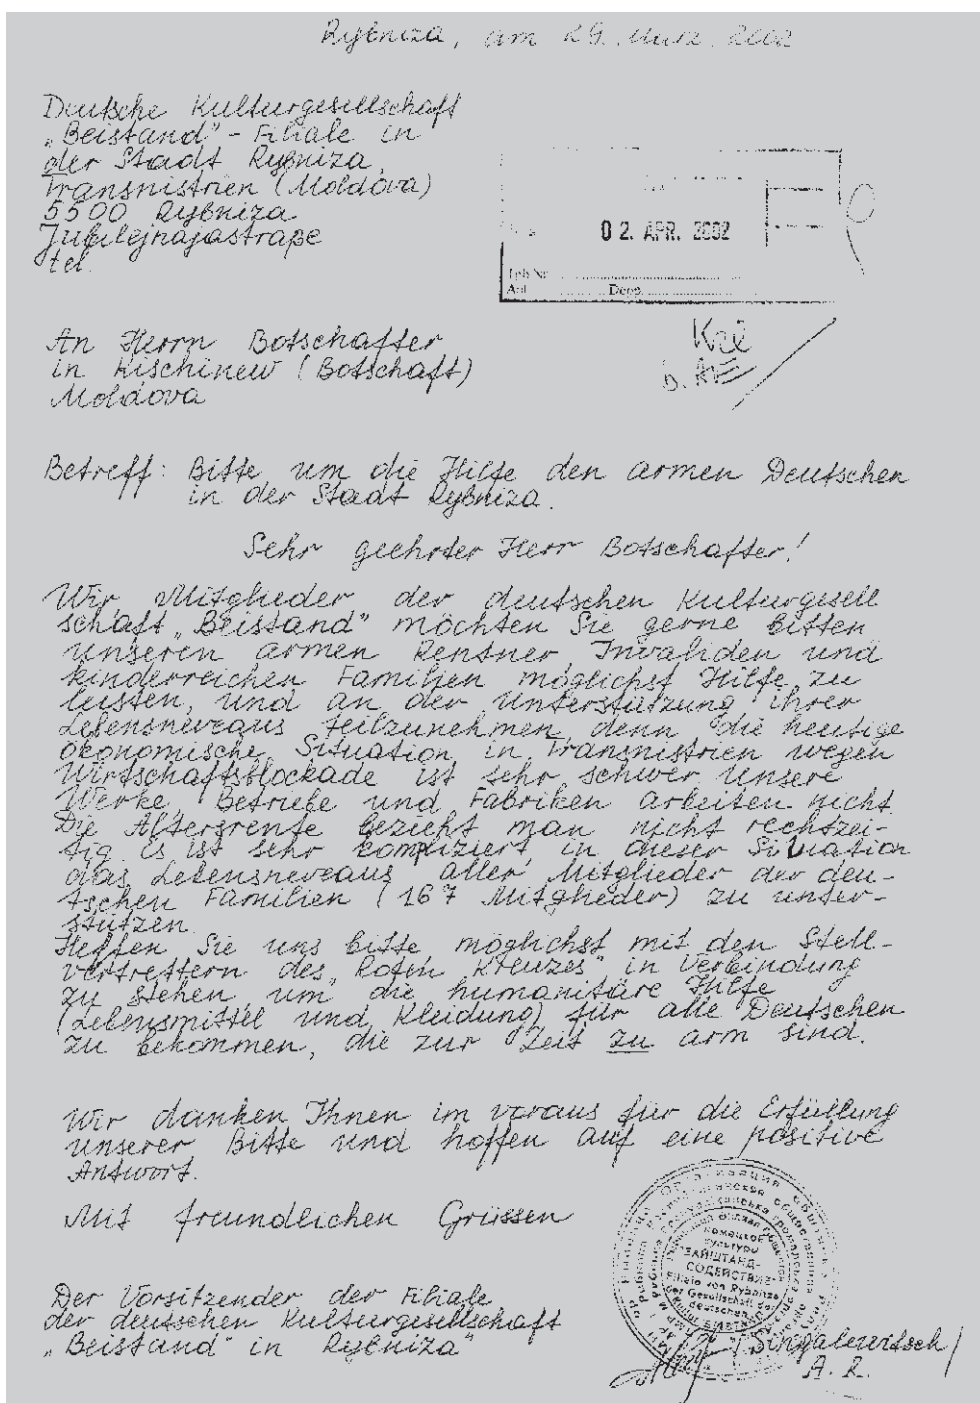 Rybniza, am 29. März 2002
Deutsche Kulturgesellschaft
„Beistand" - Filiale in
der Stadt Rybniza,
Transnistrien (Moldova)
5500 Rybniza
Jubilejnajastraße
tel.
02. APR. 2002
Anl. Dopp.
An Herrn Botschafter
in Kischinew (Botschaft)
Moldova
Betreff: Bitte um die Hilfe den armen Deutschen
in der Stadt Rybniza.
Sehr geehrter Herr Botschafter!
Wir, Mitglieder der deutschen Kulturgesell
schaft „Beistand" möchten Sie gerne bitten
unseren armen Rentner, Invaliden und
kinderreichen Familjen möglichst Hilfe zu
leisten, und an der Unterstützung ihrer
Lebensneveaus teilzunehmen, denn die heutige
ökonomische Situation in Transnistrien wegen
Wirtschaftsblockade ist sehr schwer. Unsere
Werke, Betriebe und Fabriken arbeiten nicht.
Die Altersrente bezieht man nicht rechtzei-
tig. Es ist sehr kompliziert, in dieser Situation
das Lebensneveaus aller Mitglieder der deu-
tschen Familien (167 Mitglieder) zu unter-
stützen.
Helfen Sie uns bitte möglichst mit den Stell-
vertrettern des „Roten Kreuzes" in Verbindung
zu stehen, um die humanitäre Hilfe
(Lebensmittel und Kleidung) für alle Deutschen
zu bekommen, die zur Zeit zu arm sind.
Wir danken Ihnen im voraus für die Erfüllung
unserer Bitte und hoffen auf eine positive
Antwort.
Mit freundlichen Grüssen
немецкой
культуры
"БАЙШТАНД-
СОДЕЙСТВИЕ"
Filiale von Rybnitza
der Gesellschaft der
deutschen
Der Vorsitzender der Filiale
der deutschen Kulturgesellschaft
„Beistand" in Rybniza"
/Singalewitsch/
A. R.